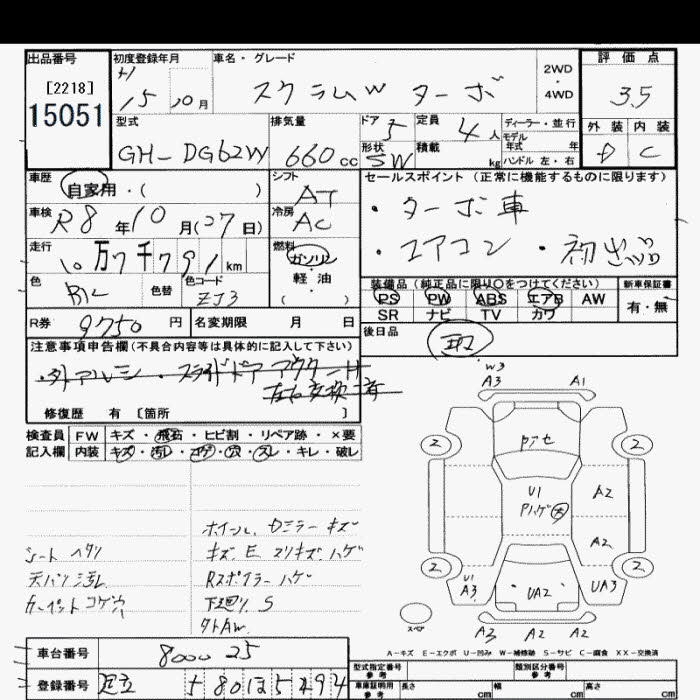 出品番号
[2218]
15051
初度登録年月
H 15 10月
車名・グレード
スクラムW ターボ
2WD
・
4WD
評価点
3.5
外装 内装
D C
型式
GH-DG62W
排気量
660cc
ドア 5
形状 SW
定員 4人
積載 kg
ディーラー・並行
モデル
年式 年
ハンドル 左・右
車歴
自家用・( )
シフト
AT
車検
R8年10月(27日)
冷房
AC
走行
10万7千791km
燃料
ガソリン
軽・油
( )
色
色替
色コード
ZJ3
R券
9750円
名変期限 月 日
セールスポイント (正常に機能するものに限ります)
・ターボ車
・エアコン ・初出品
装備品 (純正品に限り○をつけてください)
PS PW ABS エアB AW
SR ナビ TV カワ
新車保証書
有・無
後日品
注意事項申告欄(不具合内容等は具体的に記入して下さい)
・外アルミ・スライドドアアウター
左右交換済
修復歴 有 [箇所 ]
検査員
記入欄
FW キズ・飛石・ヒビ割・リペア跡・×要
内装 キズ・汚レ・コゲ・穴・スレ・キレ・破レ
ホイール、ドミラーキズ
キズ E スリキズ ハゲ
Rスポイラーハゲ
下廻り S
外AW
シート ヘタリ
天バリ汚レ
カーペットコゲ穴
W3
A3 A1
2 2
U1
Pハゲ大
A2
A2
2 2
U1
A3
UA2
UA3
スペア
A3 A2 A2
A-キズ E-エクボ U-凹み W-補修跡 S-サビ C-腐食 XX-交換済
車台番号
800025
登録番号
足立 580ほ5494
型式指定番号
参考
類別区分番号
参考
車庫証明用
参考
長さ cm 幅 cm 高さ cm